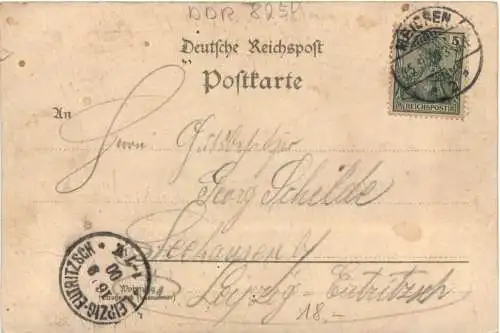 DDR 825
Deutsche Reichspost
Postkarte
MEISSEN
5
REICHSPOST
An
Herrn Gutsbesitzer
Georg Schilde
Seehausen b/
Leipzig-Eutritzsch
Wohnung
LEIPZIG-EUTRITZSCH
00
18.-